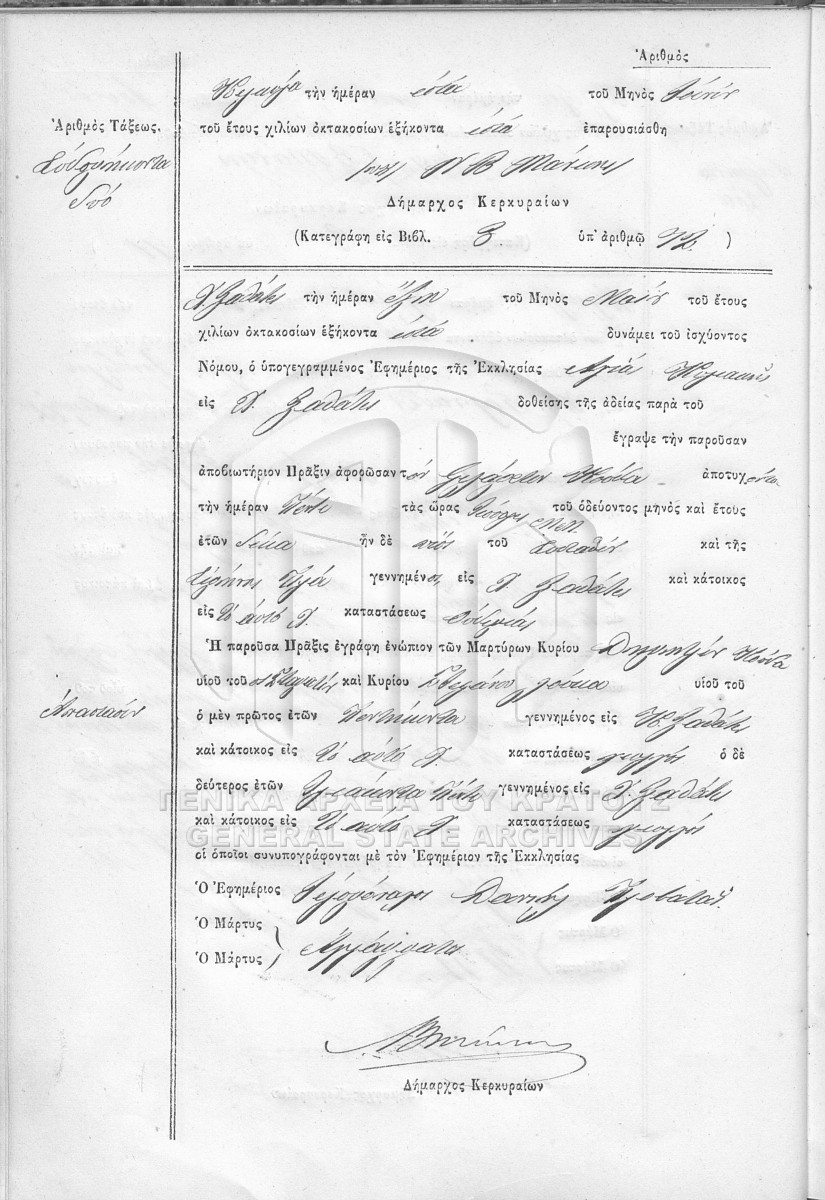 Ἀριθμὸς
Κέρκυρα τὴν ἡμέραν ἑπτὰ τοῦ Μηνὸς
Ἀριθμὸς Τάξεως.
τοῦ ἔτους χιλίων ὀκτακοσίων ἑξήκοντα ἑπτὰ ἐπαρουσιάσθη
δύο
Δήμαρχος Κερκυραίων
(Κατεγράφη εἰς Βιβλ. 3 ὑπ' ἀριθμῷ 72 )
Χ. Ξαθάτες τὴν ἡμέραν ἕξη τοῦ Μηνὸς Μαΐου τοῦ ἔτους
χιλίων ὀκτακοσίων ἑξήκοντα ἑπτὰ δυνάμει τοῦ ἰσχύοντος
Νόμου, ὁ ὑπογεγραμμένος Ἐφημέριος τῆς Ἐκκλησίας Ἁγία Κυριακῆς
εἰς Χ. Ξαθάτες δοθείσης τῆς ἀδείας παρὰ τοῦ
ἔγραψε τὴν παροῦσαν
ἀποβιωτήριον Πρᾶξιν ἀφορῶσαν τὸν Κούστα ἀποτυχόντα
τὴν ἡμέραν Πέντε τὰς ὥρας τοῦ ὁδεύοντος μηνὸς καὶ ἔτους
ἐτῶν δέκα ἦν δὲ υἱὸς τοῦ καὶ τῆς
Εἰρήνης γεννημένος εἰς Χ. Ξαθάτες καὶ κάτοικος
εἰς τὸ αὐτὸ Χ. καταστάσεως
Ἡ παροῦσα Πρᾶξις ἐγράφη ἐνώπιον τῶν Μαρτύρων Κυρίου Δημητρίου Κούστα
υἱοῦ τοῦ καὶ Κυρίου Στεφάνου υἱοῦ τοῦ
Ἀναστασίου
ὁ μὲν πρῶτος ἐτῶν Πεντήκοντα γεννημένος εἰς Χ. Ξαθάτες
καὶ κάτοικος εἰς τὸ αὐτὸ Χ. καταστάσεως γεωργὸς ὁ δὲ
δεύτερος ἐτῶν Τριάκοντα Πέντε γεννημένος εἰς Χ. Ξαθάτες
ΓΕΝΙΚΑ ΑΡΧΕΙΑ ΤΟΥ ΚΡΑΤΟΥΣ
καὶ κάτοικος εἰς τὸ αὐτὸ Χ. καταστάσεως γεωργὸς
GENERAL STATE ARCHIVES
οἱ ὁποῖοι συνυπογράφονται μὲ τὸν Ἐφημέριον τῆς Ἐκκλησίας
Ὁ Ἐφημέριος
Ὁ Μάρτυς
Ἀγράμματοι
Ὁ Μάρτυς
Δήμαρχος Κερκυραίων